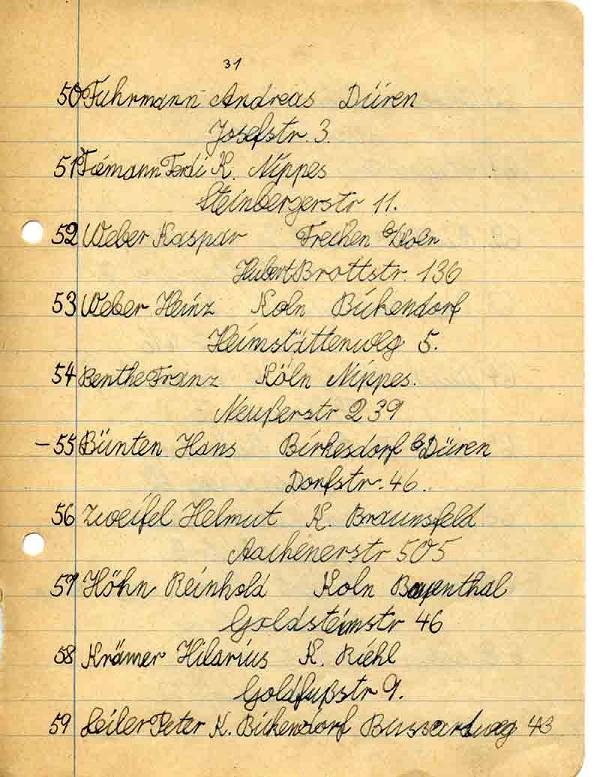 31
50 Fuhrmann Andreas Düren
Josefstr. 3.
51 Tiemann Ferdi K. Nippes
Steinbergerstr 11.
52 Weber Kaspar Frechen b/Köln
Hubert Brottstr. 136
53 Weber Heinz Koln Bickendorf
Heimstättenweg 5.
54 Benthe Franz Köln Nippes.
Neußerstr 239
-55 Bünten Hans Birkesdorf b/Düren
Dorfstr. 46.
56 Zweifel Helmut K. Braunsfeld
Aachenerstr 505
57 Höhn Reinhold Koln Bayenthal
Goldsteinstr 46
58 Krämer Hilarius K. Riehl
Goldfußstr 9.
59 Seiler Peter K. Bickendorf Bussardweg 43